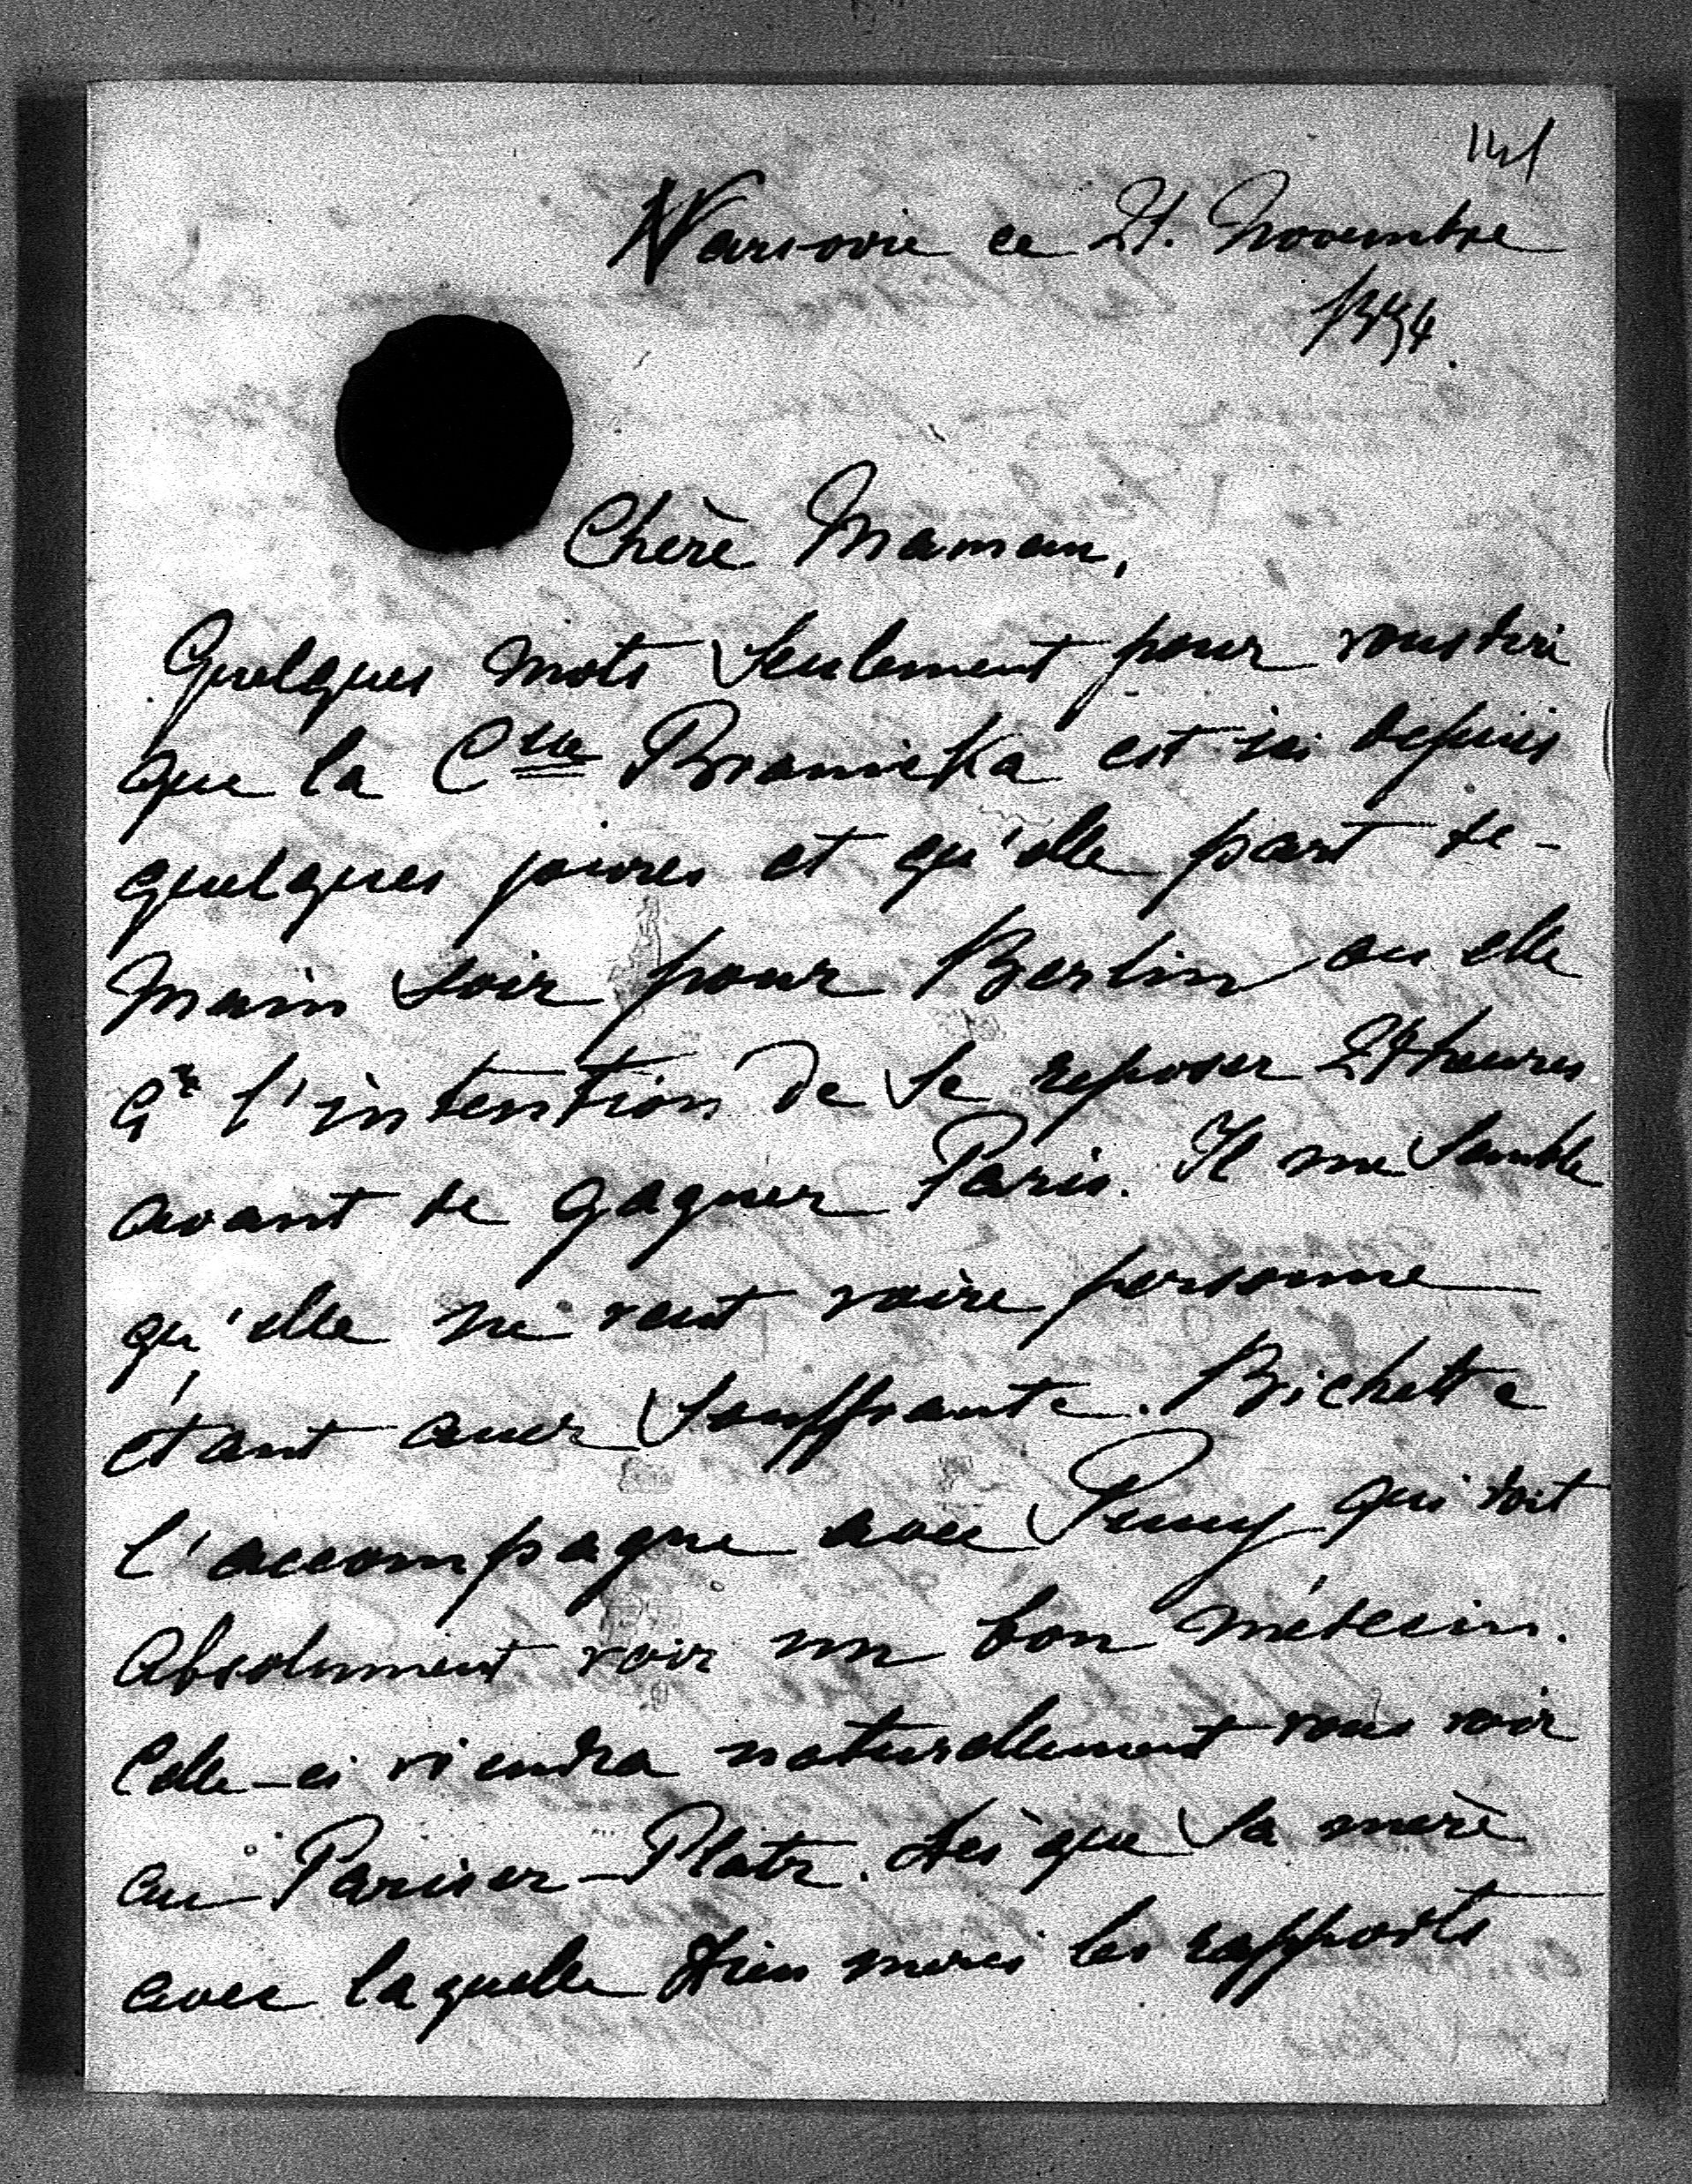 141
Varsovie ce 21. Novembre
1894.
Chère Maman,
Quelques mots seulement pour vous dire
que la Ctsse Branicka est ici depuis
quelques jours et qu'elle part de-
main soir pour Berlin ou elle
a l'intention de se reposer 24 heures
avant de gagner Paris. Il me semble
qu'elle ne veut voire personne
étant assez souffrante. Bichette
l'accompagne avec qui doit
absolument voir un bon médecin.
Celle-ci viendra naturellement vous voir
au Pariser-Platz. dès que sa mère
avec laquelle Dieu merci les rapports